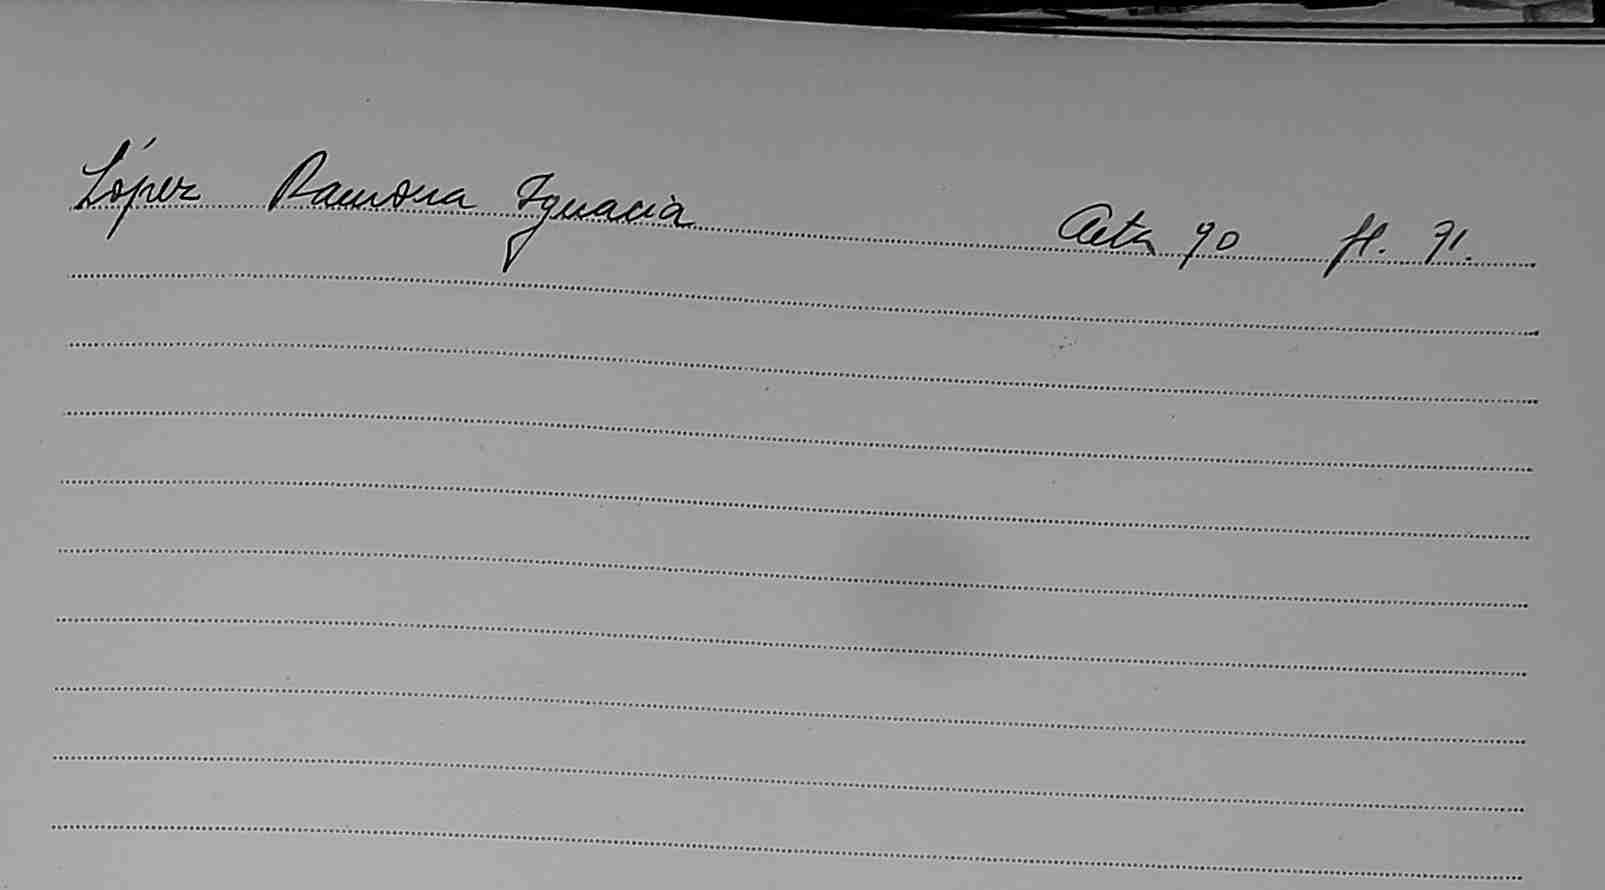 López Ramona Ignacia Acta 90 fl. 71.